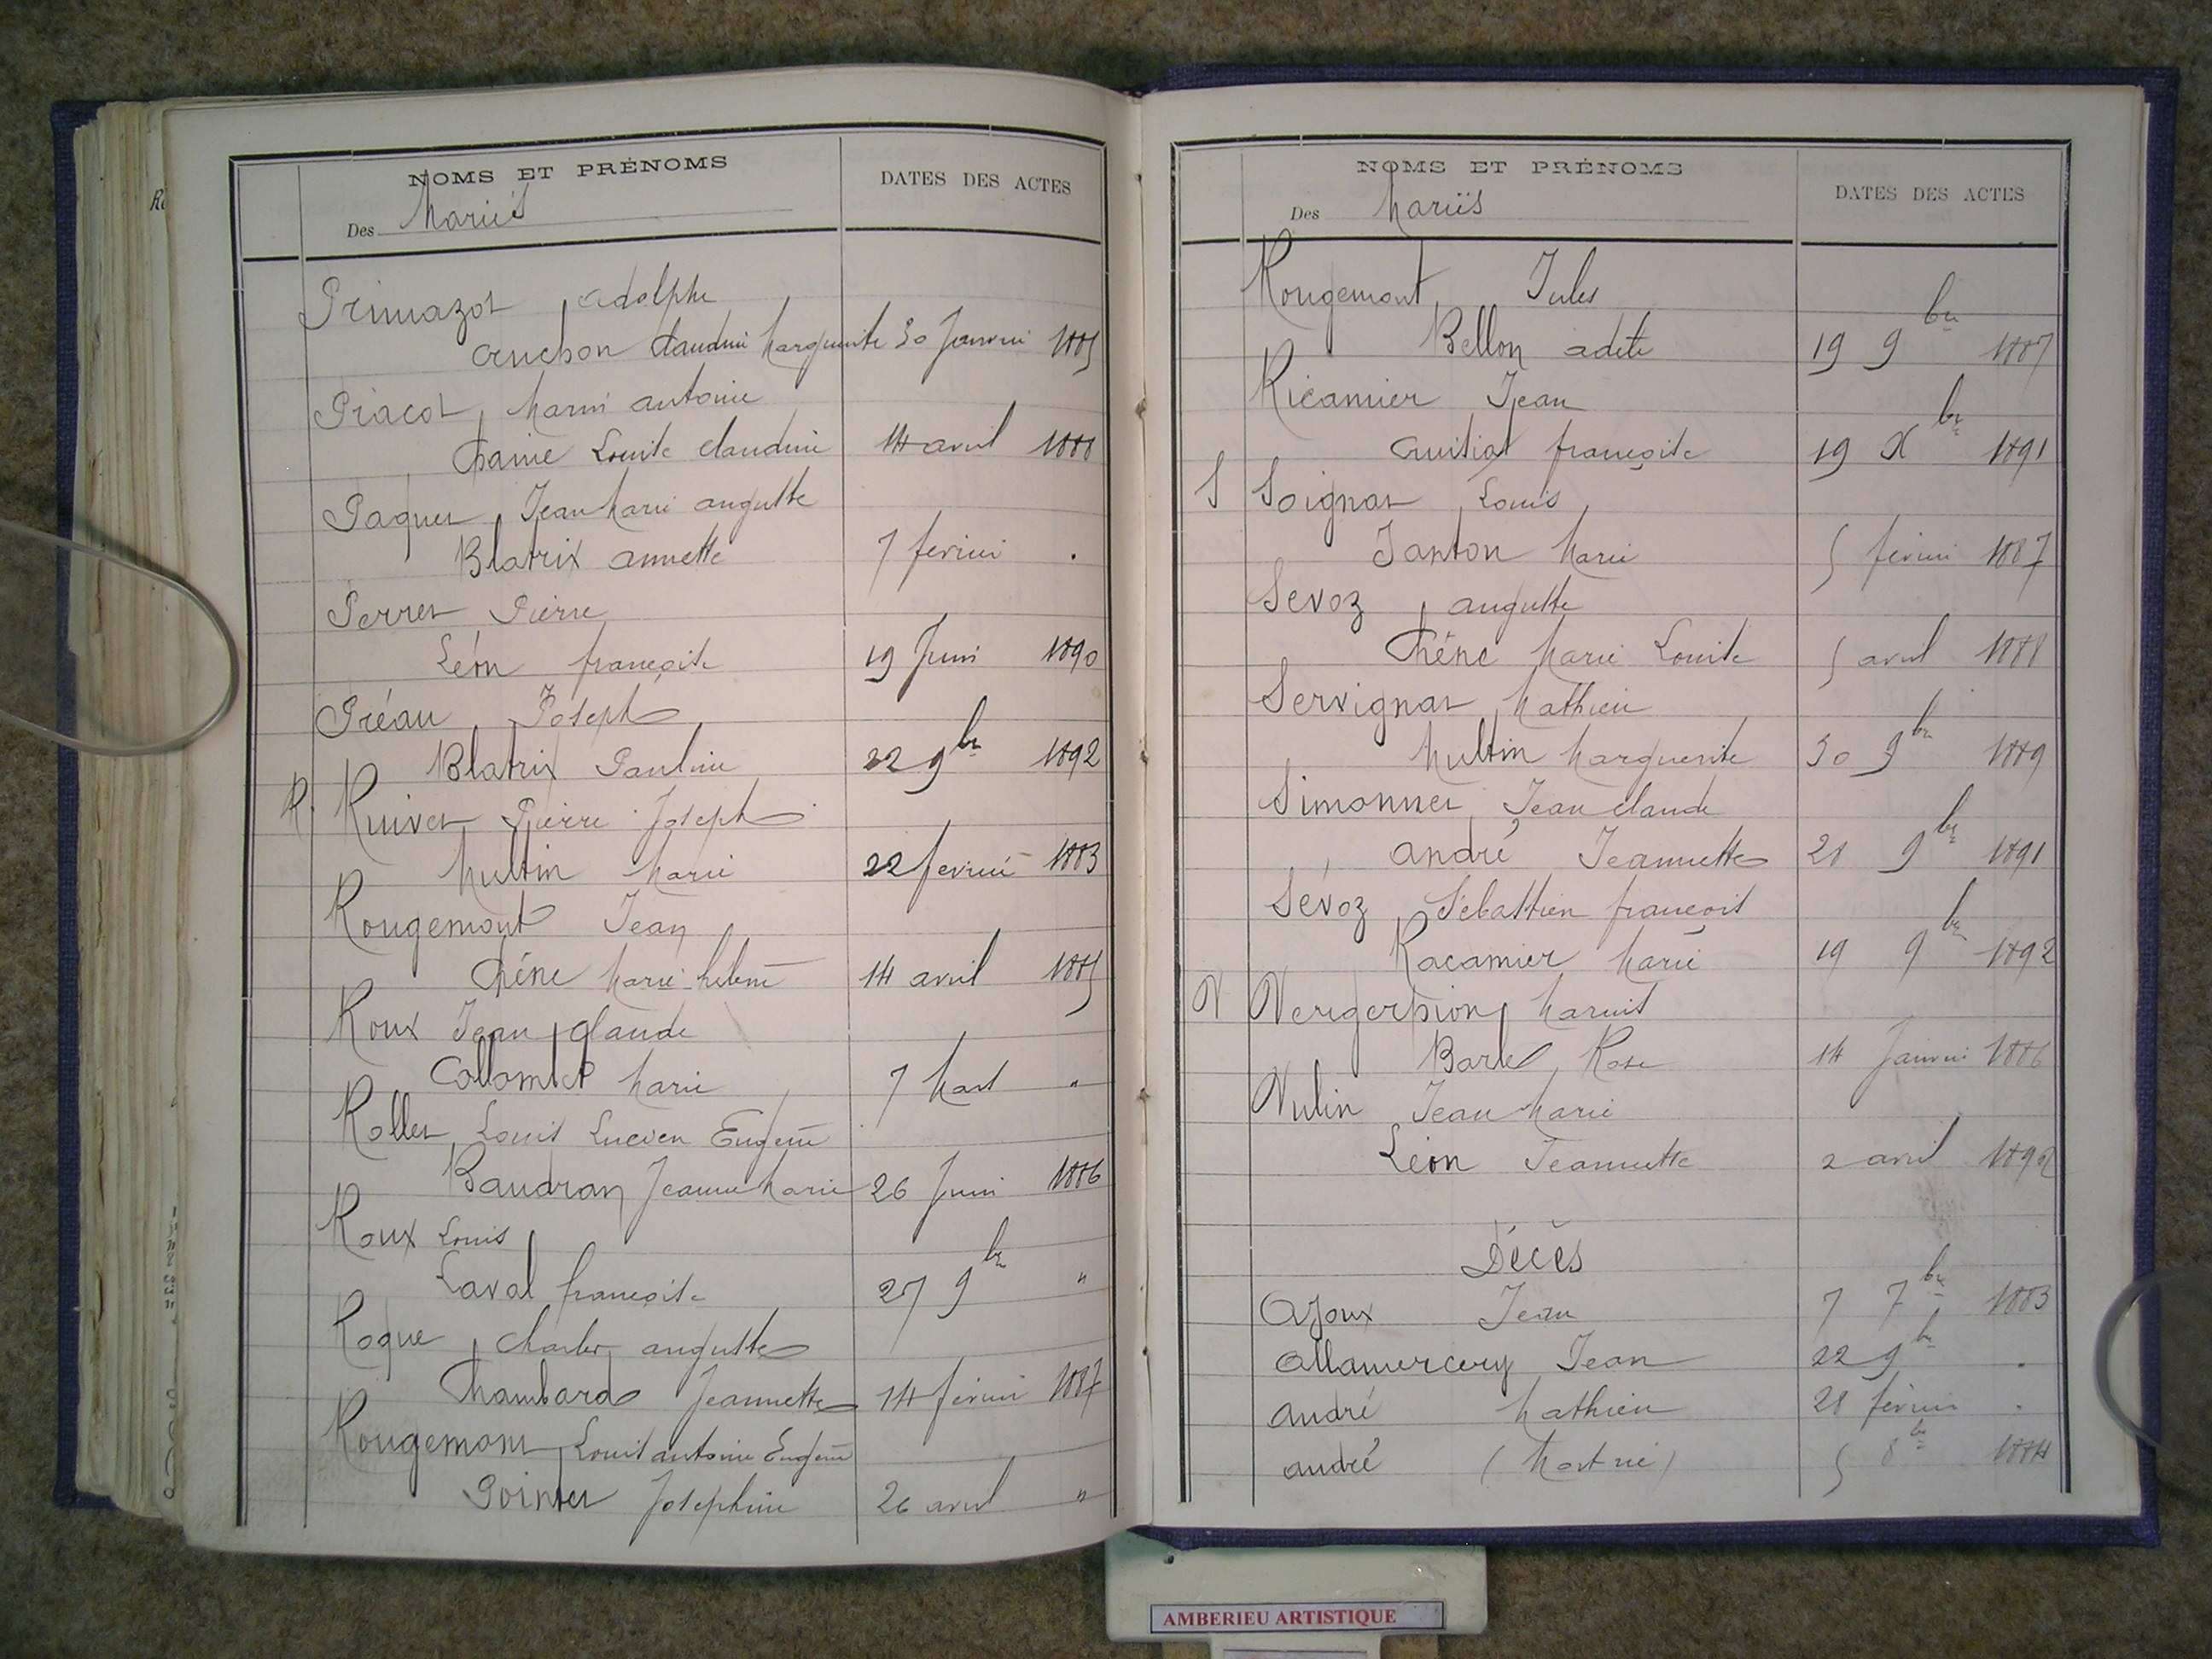 NOMS ET PRÉNOMS DATES DES ACTES
Des Mariés
Primazot Adolphe
Anchon Claudine Marguerite 30 Janvier 1885
Piacot Marie antoine
Chaine Louise Claudine 14 avril 1888
Paquet Jean Marie auguste
Blatrix annette 7 fevrier .
Perret Pierre
Léon françoise 19 Juin 1890
Préau Joseph
Blatrix Pauline 22 9bre 1892
R. Ruivet Pierre Joseph
Multin Marie 22 fevrier 1883
Rougemont Jean
Chêne Marie helene 14 avril 1885
Roux Jean Claude
Collomb Marie 7 Mars "
Rollet Louis Lucien Eugene
Baudran Jeanne Marie 26 Juin 1886
Roux Louis
Laval françoise 27 9bre "
Roque Charles auguste
Chambard Jeannette 14 février 1887
Rougemont Louis antoine Eugene
Pointet Josephine 26 avril "
NOMS ET PRÉNOMS DATES DES ACTES
Des Mariés
Rougemont Jules
Bellon adele 19 9bre 1887
Ricamier Jean
françoise 19 Xbre 1891
S Soignat Louis
Janton Marie 5 février 1887
Sevoz auguste
Chêne Marie Louise 5 avril 1888
Servignat Mathieu
Multin Marguerite 30 9bre 1889
Simonnet Jean Claude
andré Jeannette 28 9bre 1891
Sévoz Sébastien françois
Racamier Marie 19 9bre 1892
V Vergerpion Marius
Barle Rose 14 Janvier 1886
Vulin Jean Marie
Léon Jeannette 2 avril 1892
Décès
Ajoux Jean 7 7bre 1883
Allamercery Jean 22 9bre .
andré Mathieu 28 février .
andré (Mort né) 5 8bre 1884
AMBERIEU ARTISTIQUE